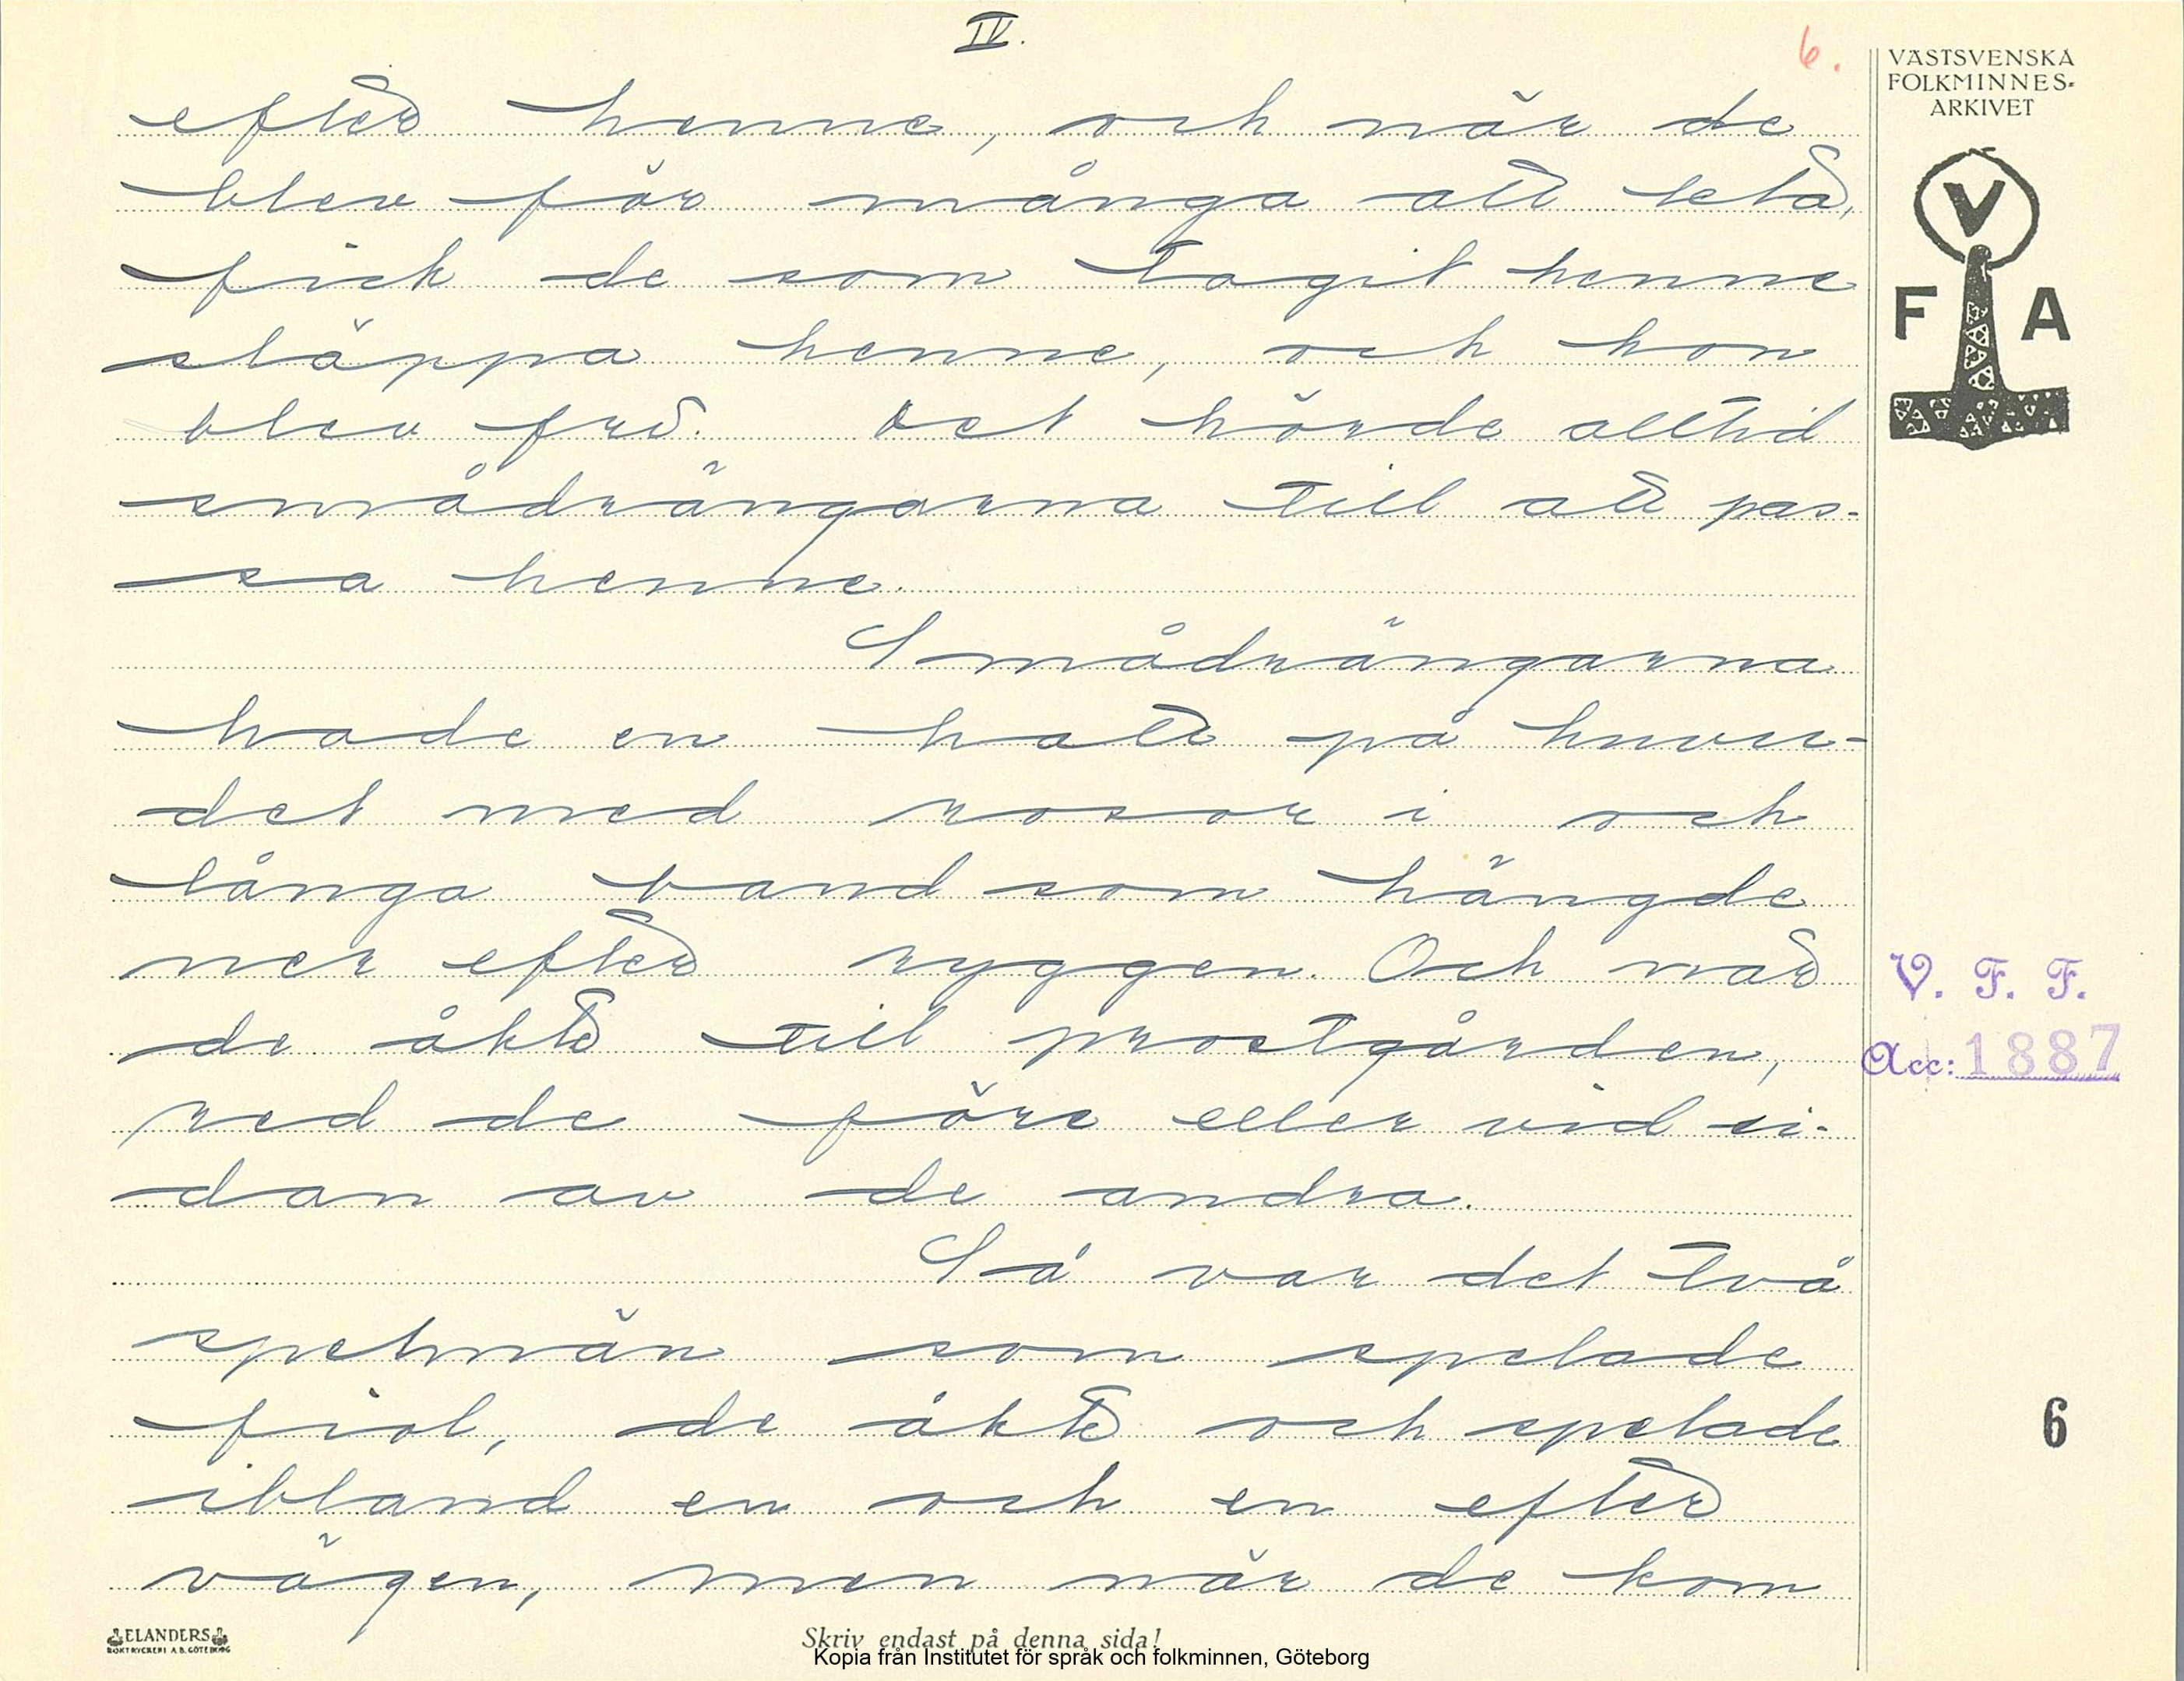 IV.
6.
VÄSTSVENSKA
FOLKMINNES-
ARKIVET
V
F A
efter henne, och när de
blev för många att leta,
fick de som tagit henne
släppa henne, och hon
blev fri. Det hörde alltid
smådrängarna till att pas-
sa henne.
Smådrängarna
hade en hatt på huvu-
det med rosor i och
långa band som hängde
ner efter ryggen. Och när
de åkte till prostgården,
red de före eller vid si-
dan av de andra.
Så var det två
spelmän som spelade
fiol, de åkte och spelade
ibland en och en efter
vägen, men när de kom
V. F. F.
Acc: 1887
6
ELANDERS
BOKTRYCKERI A.B. GÖTEBORG
Skriv endast på denna sida!
Kopia från Institutet för språk och folkminnen, Göteborg